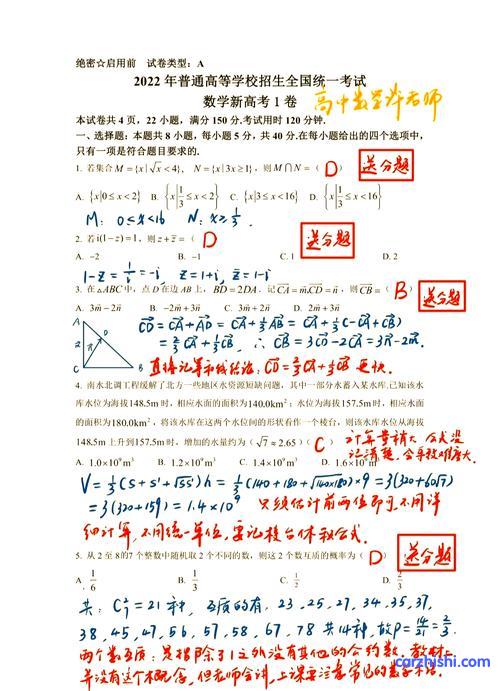 绝密☆启用前 试卷类型：A
2022 年普通高等学校招生全国统一考试
数学新高考 1 卷 高中数学许老师
本试卷共 4 页，22 小题，满分 150 分.考试用时 120 分钟.
一、选择题：本题共 8 小题，每小题 5 分，共 40 分.在每小题给出的四个选项中，
只有一项是符合题目要求的.
1. 若集合 M={x|√x<4}, N={x|3x≥1}，则 M∩N=（ D ） 送分题
A. {x|0≤x<2} B. {x|1/3≤x<2} C. {x|3≤x<16} D. {x|1/3≤x<16}
M: 0≤x<16 N: x≥1/3.
2. 若 i(1-z)=1，则 z+z̄=（ D 送分题
A. -2 B. -1 C. 1 D. 2
1-z=1/i=-i, z=1+i, z̄=1-i
3. 在△ABC 中，点 D 在边 AB 上，BD=2DA．记 CA=m,CD=n，则 CB=（ B ） 送分题
A. 3m-2n B. -2m+3n C. 3m+2n D. 2m+3n
A 2 D B
CD=CA+AD=CA+1/3AB=CA+1/3(-CA+CB)
=2/3CA+1/3CB, ∴CB=3CD-2CA=3n-2m.
直接记第和线结论: CD=2/3CA+1/3CB 更快.
4. 南水北调工程缓解了北方一些地区水资源短缺问题，其中一部分水蓄入某水库.已知该水
库水位为海拔 148.5m 时，相应水面的面积为 140.0km²；水位为海拔 157.5m 时，相应水面
的面积为 180.0km²，将该水库在这两个水位间的形状看作一个棱台，则该水库水位从海拔
148.5m 上升到 157.5m 时，增加的水量约为（√7≈2.65）( C ) 计算量稍大 公式没
记清楚，会导致难度大.
A. 1.0×10⁹m³ B. 1.2×10⁹m³ C. 1.4×10⁹m³ D. 1.6×10⁹m³
V=1/3(S+S'+√SS')h=1/3(140+180+√140×180)×9=3(320+60√7)
=3(320+159)=1.4×10⁹ 只须估计前两位即可,不用详
细计算,不用统一单位,要记棱台体积公式.
5. 从 2 至 8 的 7 个整数中随机取 2 个不同的数，则这 2 个数互质的概率为（ D ） 送分题
A. 1/6 B. 1/3 C. 1/2 D. 2/3
共: C₇²=21种, 互质的有, 23, 25, 27, 34, 35, 37,
38, 45, 47, 56, 57, 58, 67, 78 共14种,故P=14/21=2/3.
两个数互质: 是指除了1之外没有其他的公约数. 教材上
并没有这个概念, 但老师会讲, 上课要注意常见的数学术语.
carzhishi.com